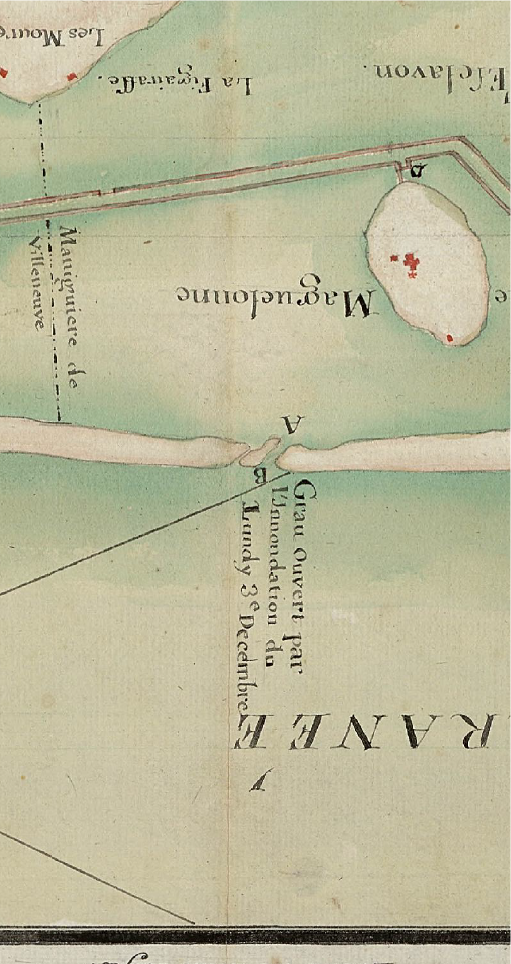 Les Mourg
La Figairasse.
l'Esclavon.
D
Maniguiere de
Villeneuve
Maguelonne
e
A
B
Grau ouvert par
l'Innondation du
Lundy 3e Decembre
RANEE